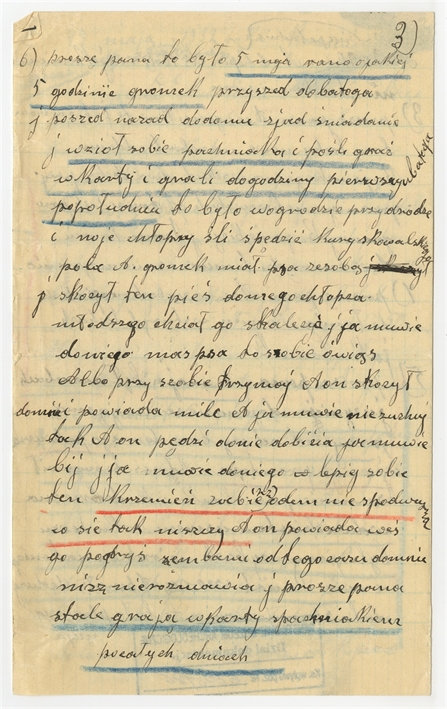 3)
6) prosze pana to było 5 maja rano o
5 godzinie gromek przyszed do batoga
j poszed nazad dodomu zjad śniadanie
j wzioł sobie pachniaka i pośli grać
w karty i grali dogodziny pierwszy
popołudniu to było wogrodzie przydrodze
i moje chłopcy śli spędzić kury skowalskiego
pola A. gromek miał psa zesobą
j skoczył ten pies domego chłopca
młodszego chciał go skaleczć j ja muwie
doniego masz psa to sobie owiąs
Albo przy szobie trzymoj A on skoczył
domnie i powiada mile A ja muwie nie zuchuj
tak A on pędzi donie dobicia ja muwie
bij j ja muwie doniego wbij sobie
ten krzemień zebi nie spodziewa
co sie tak niszczy A on powiada weś
go pogryś zembami od tego czasu domnie
nizz nierozmawia j prosze pana
stale graja wkarty spachniakiem
pocałych dniach